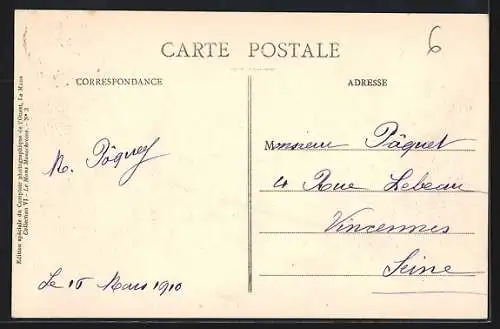 CARTE POSTALE
6
CORRESPONDANCE
ADRESSE
Edition spéciale du Comptoir photographique de l'Ouest, Le Mans
Collection VI - Le Mans - N° 3
Monsieur Pâquet
4 Rue Lebeau
Vincennes
Seine
Le 16 Mars 1910